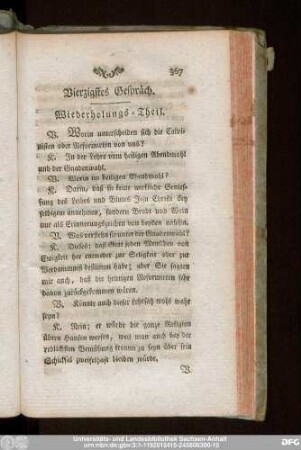 367
Vierzigstes Gespräch.
Wiederholungs-Theil.
V. Worin unterscheiden sich die Calvi-
nisten oder Reformirten von uns?
K. In der Lehre vom heiligen Abendmahl
und der Gnadenwahl.
V. Worin im heiligen Abendmahl?
K. Darin, daß sie keine wirkliche Genies-
sung des Leibes und Blutes Jesu Christi bey
selbigem annehmen, sondern Brodt und Wein
nur als Erinnerungszeichen von beyden ansehn.
V. Was verstehn sie unter der Gnadenwahl?
K. Dieses: daß Gott jeden Menschen von
Ewigkeit her entweder zur Seligkeit oder zur
Verdammniß bestimmt habe; aber Sie sagten
mir auch, daß die heutigen Reformirten sehr
davon zurückgekommen wären.
V. Könnte auch dieser Lehrsatz wohl wahr
seyn?
K. Nein; er würde die ganze Religion
übern Haufen werfen, weil man auch bey der
redlichsten Bemühung fromm zu seyn über sein
Schicksal zweifelhaft bleiben würde.
V.
Universitäts- und Landesbibliothek Sachsen-Anhalt
DFG